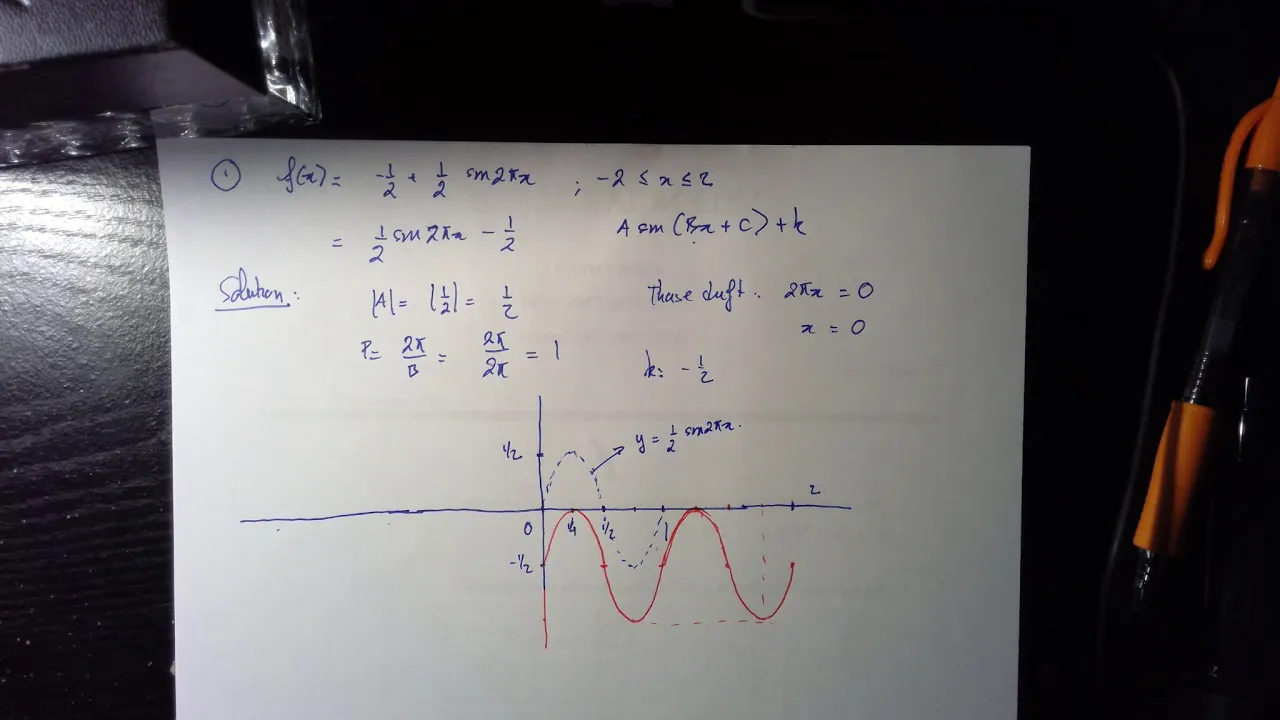 ① f(x) = -1/2 + 1/2 sin2πx ; -2 ≤ x ≤ 2
= 1/2 sin2πx - 1/2 A sin(Bx + C) + k
Solution: |A| = |1/2| = 1/2 Phase shift: 2πx = 0
x = 0
P = 2π/B = 2π/2π = 1 k: -1/2
y = 1/2 sin2πx.
1/2
2
0 1/4 1/2 1
-1/2